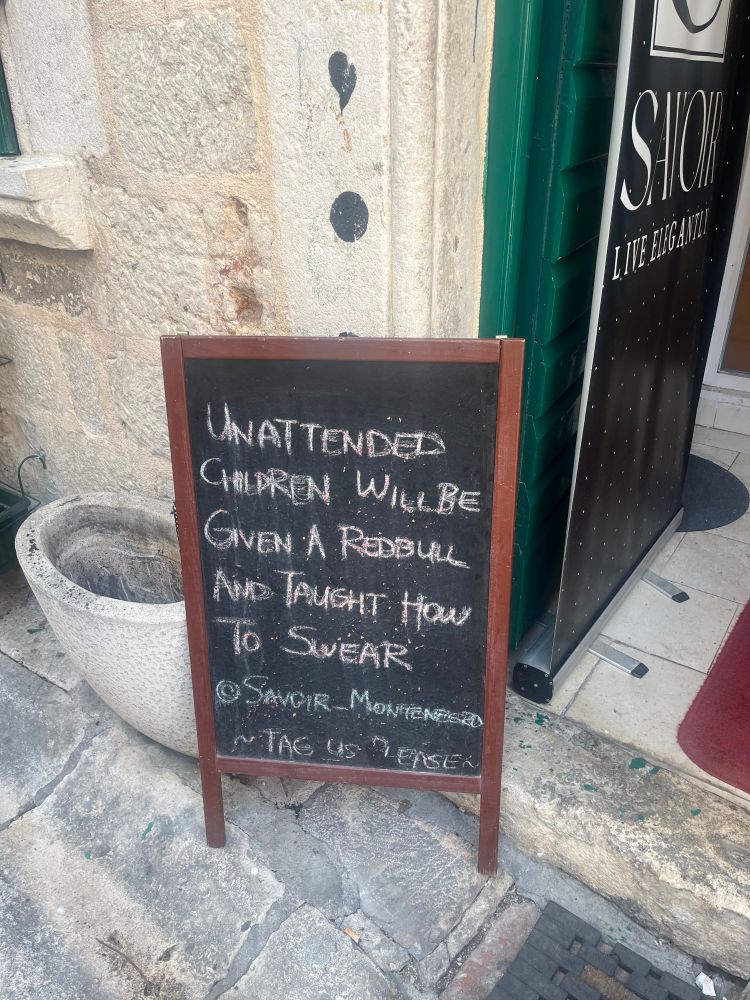 SAVOIR
LIVE ELEGANTLY
UNATTENDED
CHILDREN WILL BE
GIVEN A REDBULL
AND TAUGHT HOW
TO SWEAR
@SAVOIR_MONTENEGRO
~ TAG US PLEASE ~